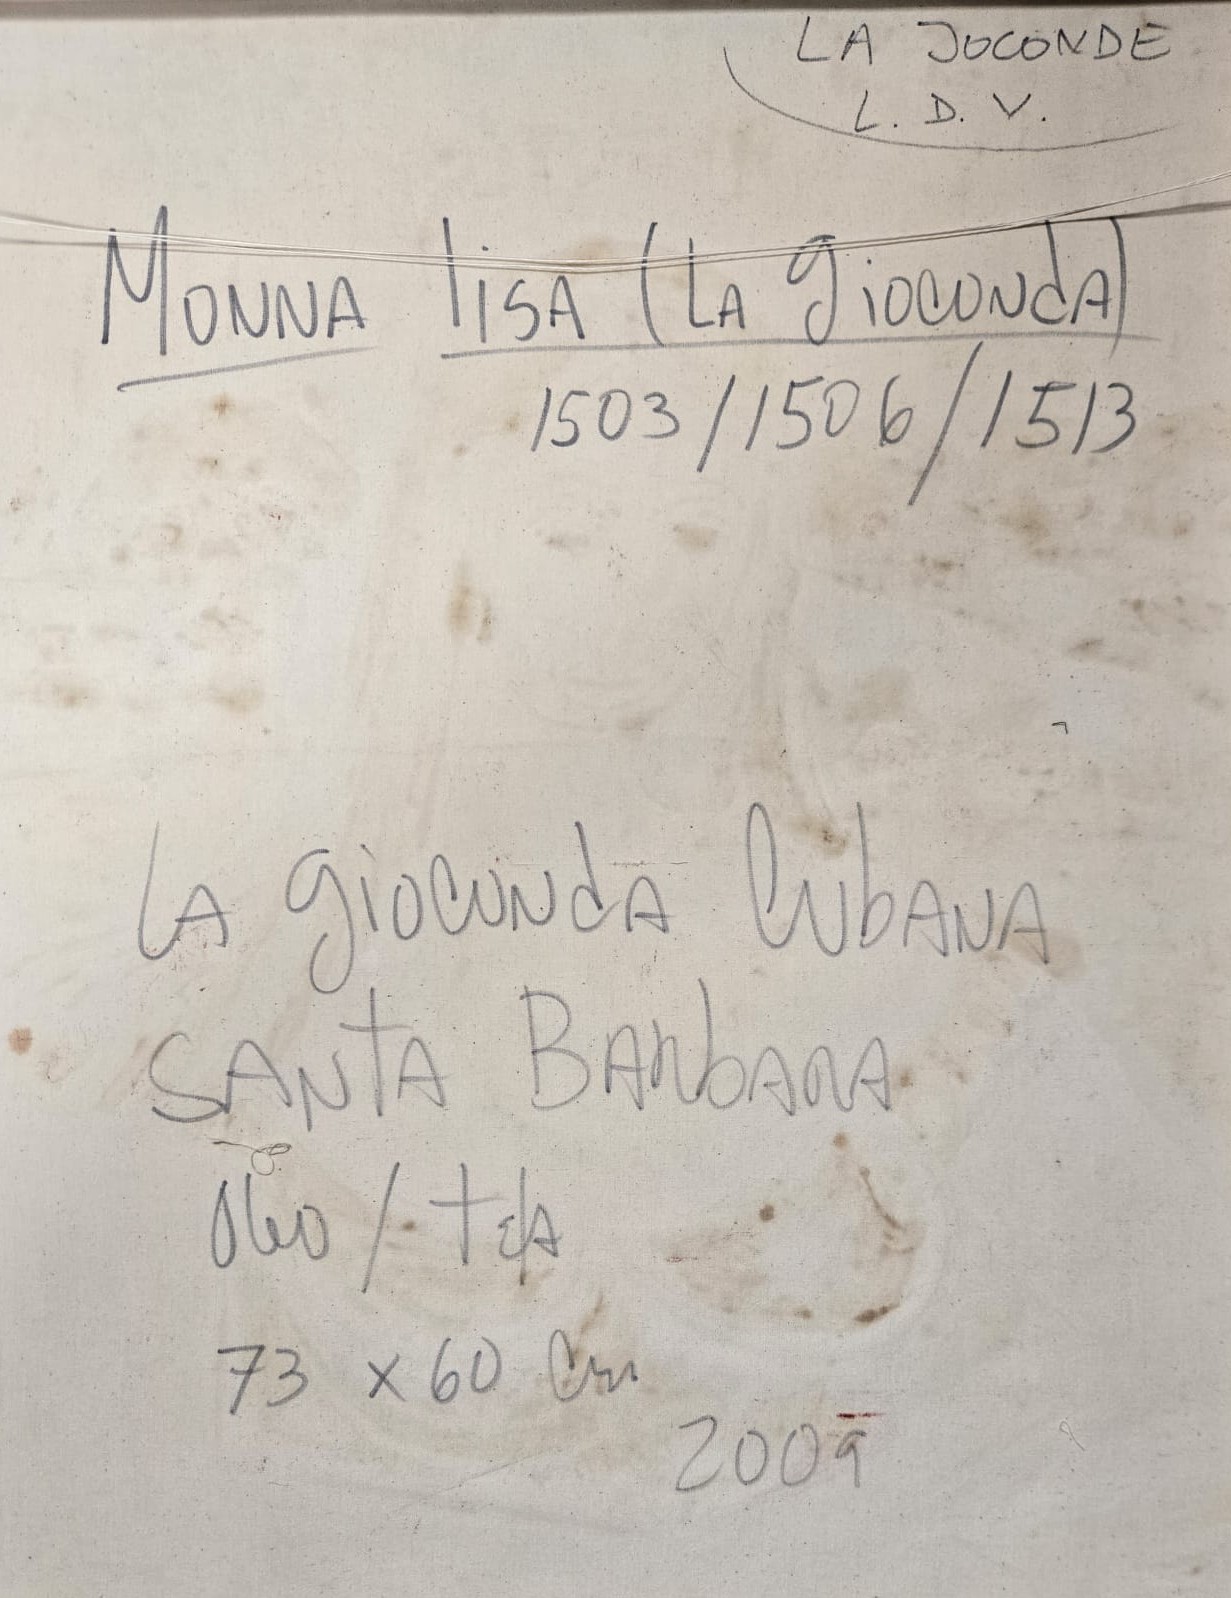 LA JOCONDE
L. D. V.
MONNA lisA (LA gioconda)
1503/1506/1513
LA gioconda CubANA
SANTA BARbARA
Oleo / TelA
73 x 60 Cm
2009